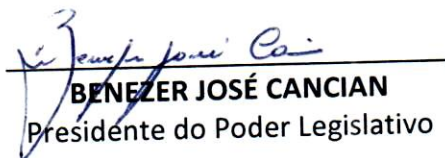 BENEZER JOSÉ CANCIAN
Presidente do Poder Legislativo